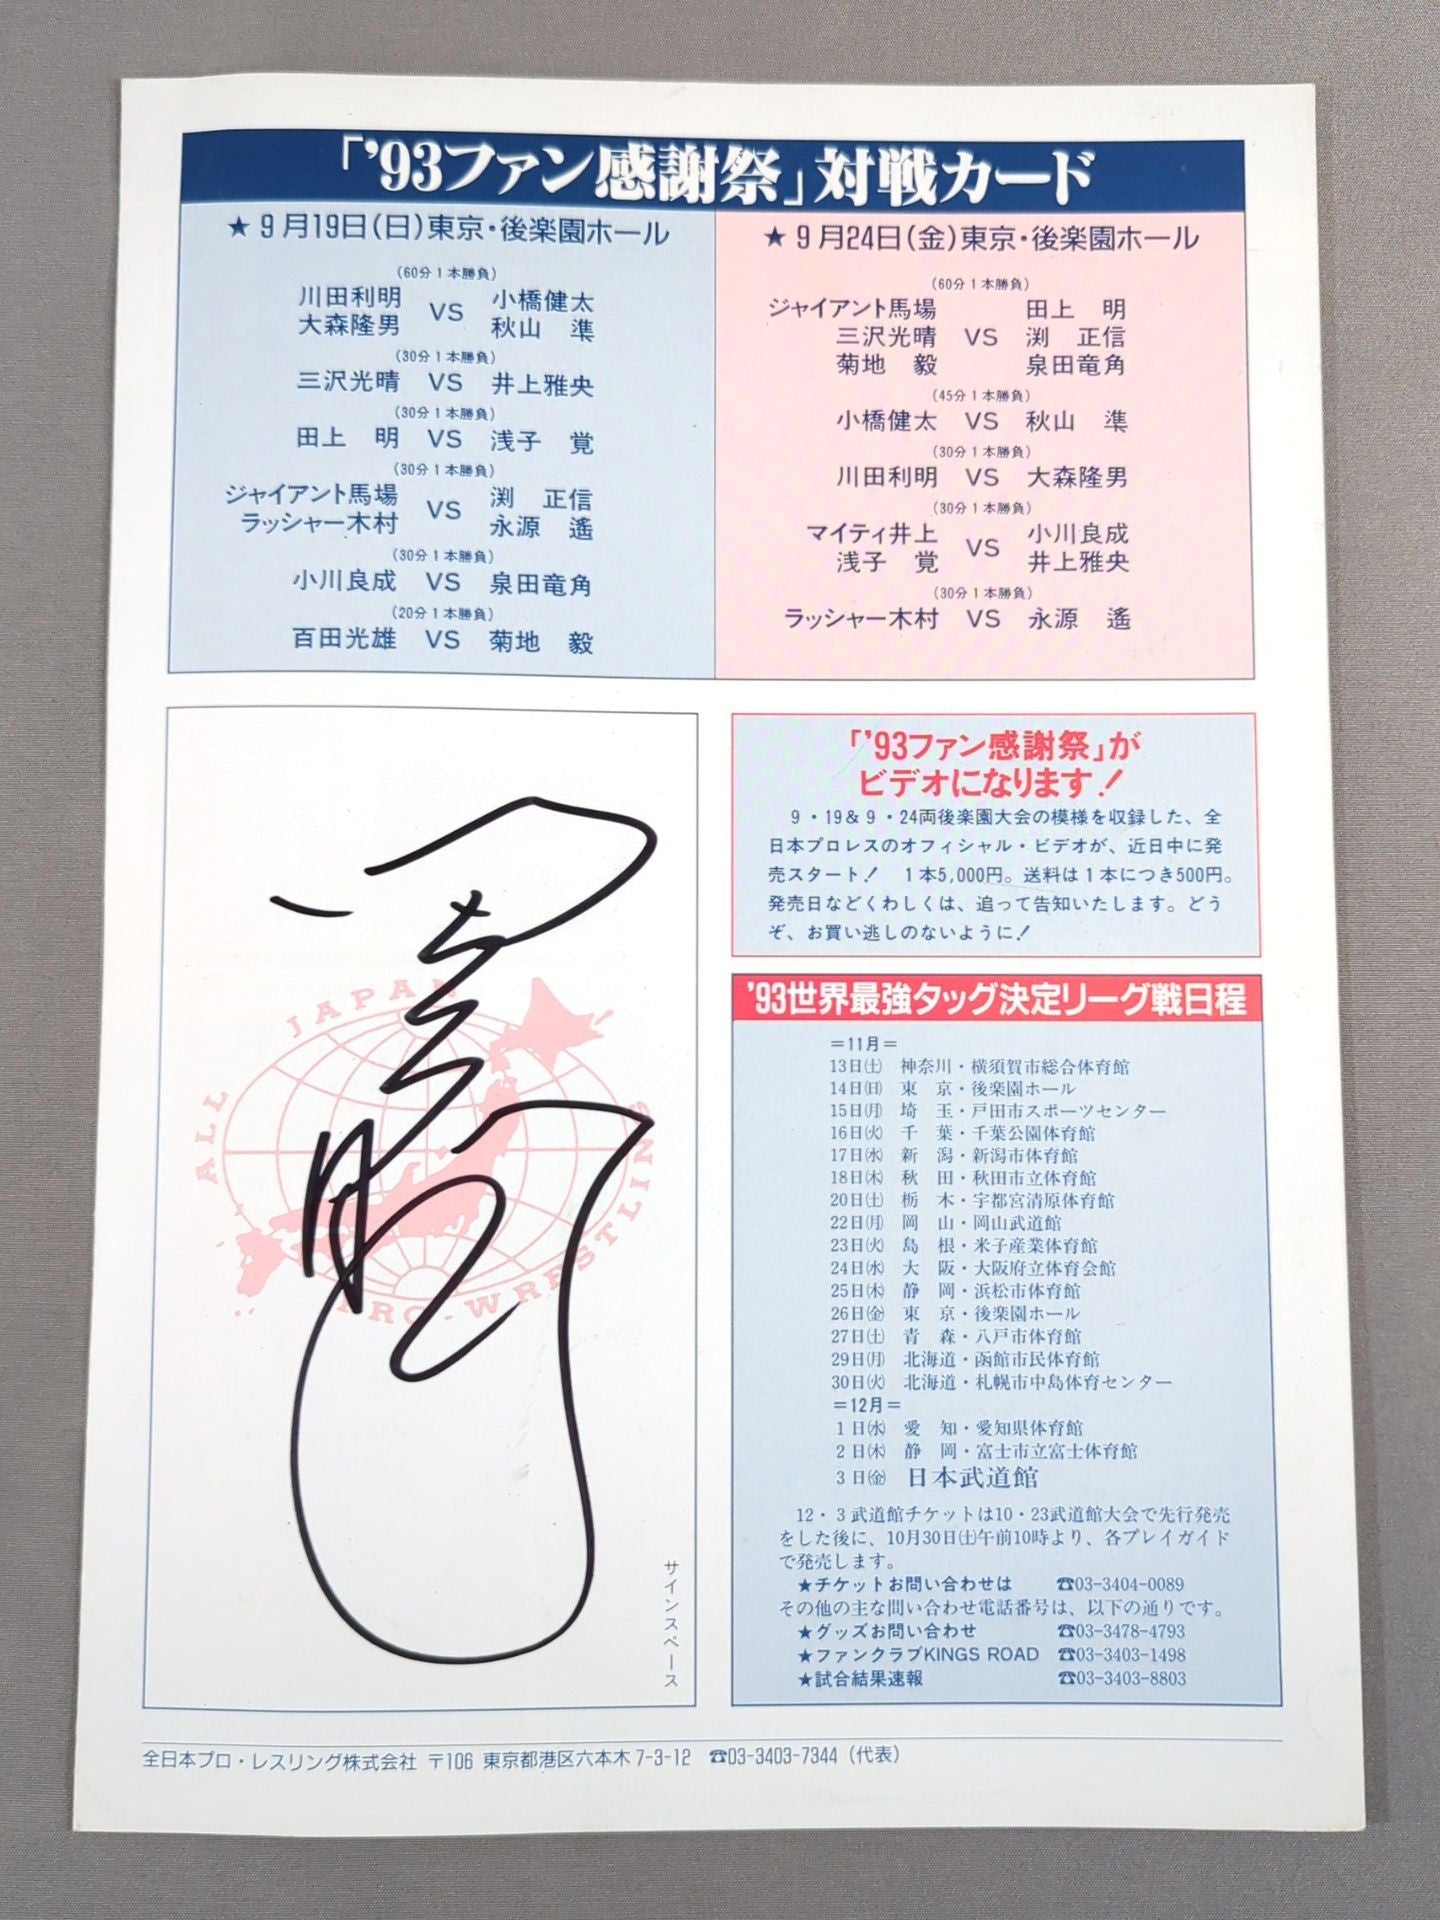 「'93ファン感謝祭」対戦カード
★9月19日(日)東京・後楽園ホール
(60分1本勝負)
川田利明 VS 小橋健太
大森隆男 秋山 準
(30分1本勝負)
三沢光晴 VS 井上雅央
(30分1本勝負)
田上 明 VS 浅子 覚
(30分1本勝負)
ジャイアント馬場 VS 渕 正信
ラッシャー木村 永源 遙
(30分1本勝負)
小川良成 VS 泉田竜角
(20分1本勝負)
百田光雄 VS 菊地 毅
★9月24日(金)東京・後楽園ホール
(60分1本勝負)
ジャイアント馬場 田上 明
三沢光晴 VS 渕 正信
菊地 毅 泉田竜角
(45分1本勝負)
小橋健太 VS 秋山 準
(30分1本勝負)
川田利明 VS 大森隆男
(30分1本勝負)
マイティ井上 VS 小川良成
浅子 覚 井上雅央
(30分1本勝負)
ラッシャー木村 VS 永源 遙
ALL JAPAN PRO-WRESTLING
サインスペース
「'93ファン感謝祭」が
ビデオになります!
9・19&9・24両後楽園大会の模様を収録した、全
日本プロレスのオフィシャル・ビデオが、近日中に発
売スタート! 1本5,000円。送料は1本につき500円。
発売日などくわしくは、追って告知いたします。どう
ぞ、お買い逃しのないように!
'93世界最強タッグ決定リーグ戦日程
=11月=
13日(土) 神奈川・横須賀市総合体育館
14日(日) 東 京・後楽園ホール
15日(月) 埼 玉・戸田市スポーツセンター
16日(火) 千 葉・千葉公園体育館
17日(水) 新 潟・新潟市体育館
18日(木) 秋 田・秋田市立体育館
20日(土) 栃 木・宇都宮清原体育館
22日(月) 岡 山・岡山武道館
23日(火) 島 根・米子産業体育館
24日(水) 大 阪・大阪府立体育会館
25日(木) 静 岡・浜松市体育館
26日(金) 東 京・後楽園ホール
27日(土) 青 森・八戸市体育館
29日(月) 北海道・函館市民体育館
30日(火) 北海道・札幌市中島体育センター
=12月=
1日(水) 愛 知・愛知県体育館
2日(木) 静 岡・富士市立富士体育館
3日(金) 日本武道館
12・3武道館チケットは10・23武道館大会で先行発売
をした後に、10月30日(土)午前10時より、各プレイガイド
で発売します。
★チケットお問い合わせは ☎03-3404-0089
その他の主な問い合わせ電話番号は、以下の通りです。
★グッズお問い合わせ ☎03-3478-4793
★ファンクラブKINGS ROAD ☎03-3403-1498
★試合結果速報 ☎03-3403-8803
全日本プロ・レスリング株式会社 〒106 東京都港区六本木7-3-12 ☎03-3403-7344(代表)